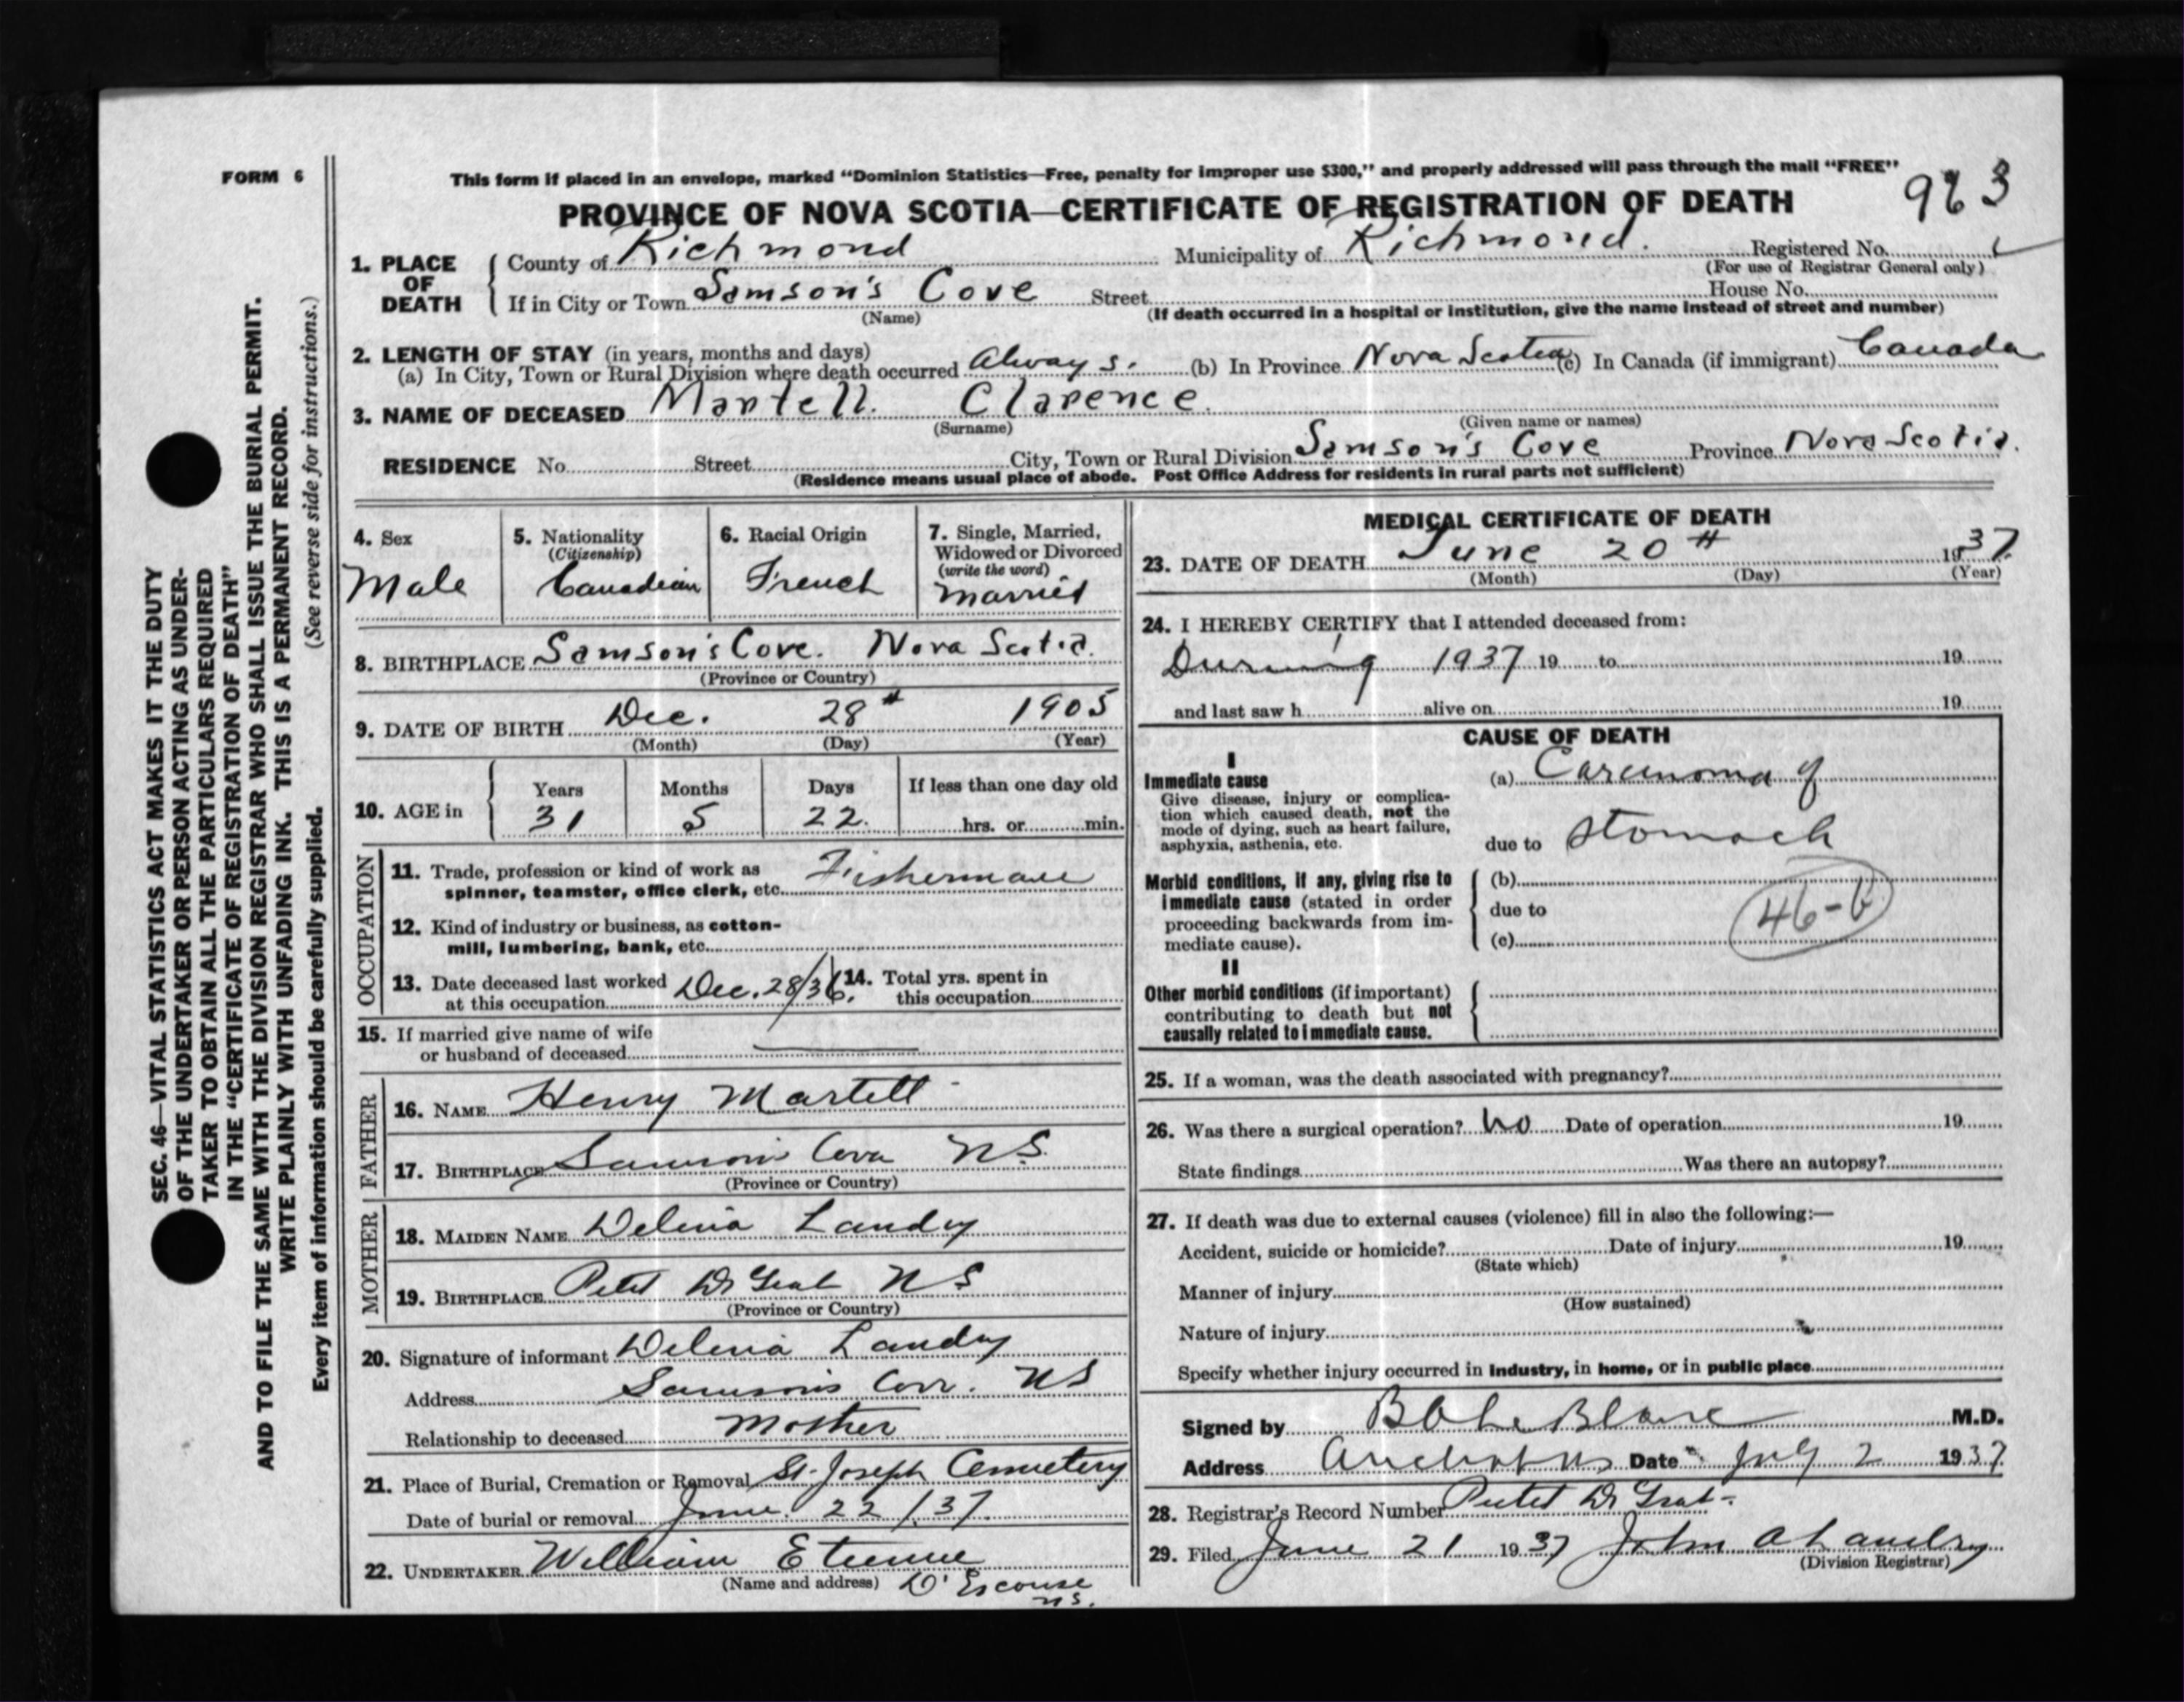 FORM 6
This form if placed in an envelope, marked "Dominion Statistics—Free, penalty for improper use $300," and properly addressed will pass through the mail "FREE"
963
PROVINCE OF NOVA SCOTIA—CERTIFICATE OF REGISTRATION OF DEATH
1. PLACE OF DEATH
County of Richmond Municipality of Richmond. Registered No.
(For use of Registrar General only)
If in City or Town Samson's Cove Street House No.
(Name) (If death occurred in a hospital or institution, give the name instead of street and number)
2. LENGTH OF STAY (in years, months and days)
(a) In City, Town or Rural Division where death occurred Always. (b) In Province Nova Scotia (c) In Canada (if immigrant) Canada
3. NAME OF DECEASED Martell. Clarence.
(Surname) (Given name or names)
RESIDENCE No. Street City, Town or Rural Division Samson's Cove Province Nova Scotia.
(Residence means usual place of abode. Post Office Address for residents in rural parts not sufficient)
4. Sex
Male
5. Nationality
(Citizenship)
Canadian
6. Racial Origin
French
7. Single, Married,
Widowed or Divorced
(write the word)
Married
8. BIRTHPLACE Samson's Cove. Nova Scotia.
(Province or Country)
9. DATE OF BIRTH Dec. 28th 1905
(Month) (Day) (Year)
10. AGE in
Years Months Days If less than one day old
31 5 22. hrs. or min.
OCCUPATION
11. Trade, profession or kind of work as
spinner, teamster, office clerk, etc. Fisherman
12. Kind of industry or business, as cotton-
mill, lumbering, bank, etc.
13. Date deceased last worked
at this occupation Dec. 28/36.
14. Total yrs. spent in
this occupation
15. If married give name of wife
or husband of deceased
FATHER
16. NAME Henry Martell
17. BIRTHPLACE Samson's Cove N.S.
(Province or Country)
MOTHER
18. MAIDEN NAME Delina Landry
19. BIRTHPLACE Petit De Grat N S
(Province or Country)
20. Signature of informant Delina Landry
Address Samson's Cove. NS
Relationship to deceased Mother
21. Place of Burial, Cremation or Removal St. Joseph Cemetery
Date of burial or removal June. 22/37.
22. UNDERTAKER William Etienne
(Name and address) D'Escousse
N S.
MEDICAL CERTIFICATE OF DEATH
23. DATE OF DEATH June 20th 1937.
(Month) (Day) (Year)
24. I HEREBY CERTIFY that I attended deceased from:
During 1937 19 to 19
and last saw h alive on 19
CAUSE OF DEATH
I
Immediate cause
Give disease, injury or complica-
tion which caused death, not the
mode of dying, such as heart failure,
asphyxia, asthenia, etc.
(a) Carcinoma of
due to Stomach
Morbid conditions, if any, giving rise to
immediate cause (stated in order
proceeding backwards from im-
mediate cause).
(b)
due to
(c)
46-b
II
Other morbid conditions (if important)
contributing to death but not
causally related to immediate cause.
25. If a woman, was the death associated with pregnancy?
26. Was there a surgical operation? No Date of operation 19
State findings Was there an autopsy?
27. If death was due to external causes (violence) fill in also the following:—
Accident, suicide or homicide? Date of injury 19
(State which)
Manner of injury
(How sustained)
Nature of injury
Specify whether injury occurred in industry, in home, or in public place
Signed by LeBlanc M.D.
Address Arichat NS Date July 2 1937.
28. Registrar's Record Number Petit De Grat
29. Filed June 21 1937 John A Landry
(Division Registrar)
SEC. 46—VITAL STATISTICS ACT MAKES IT THE DUTY
OF THE UNDERTAKER OR PERSON ACTING AS UNDER-
TAKER TO OBTAIN ALL THE PARTICULARS REQUIRED
IN THE "CERTIFICATE OF REGISTRATION OF DEATH"
AND TO FILE THE SAME WITH THE DIVISION REGISTRAR WHO SHALL ISSUE THE BURIAL PERMIT.
WRITE PLAINLY WITH UNFADING INK. THIS IS A PERMANENT RECORD.
Every item of information should be carefully supplied. (See reverse side for instructions.)